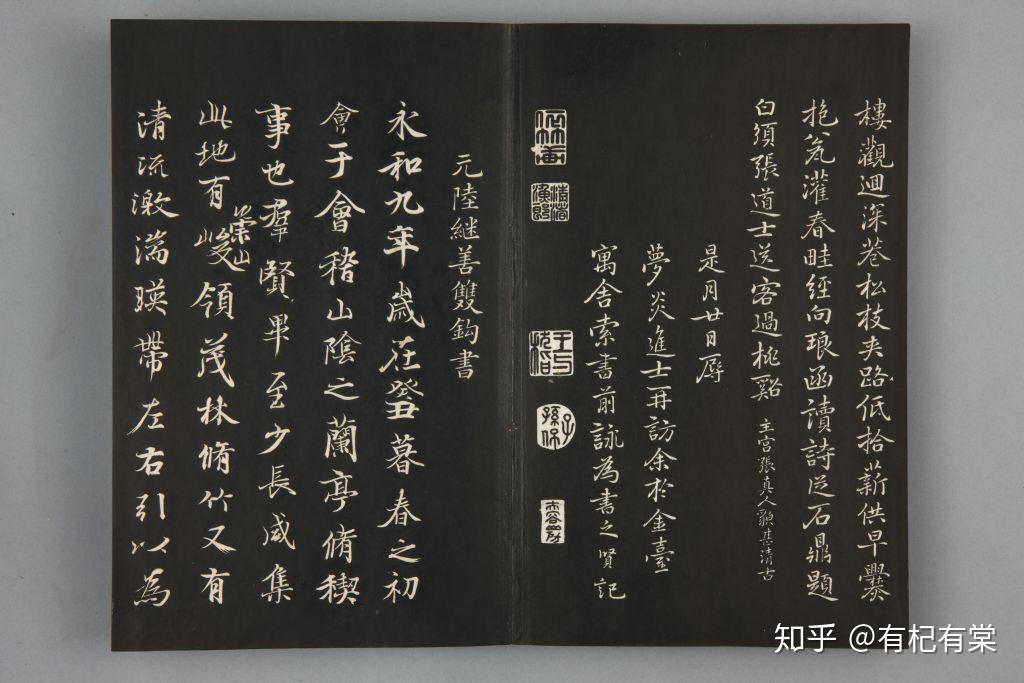 樓觀迴深巷松枝夾路低拾薪供早爨
抱瓮灌春畦經向琅函讀詩從石鼎題
白須張道士送客過桃谿 主宮張真人貌甚清古
是月廿日辱
夢炎進士再訪余於金臺
寓舍索書前詠為書之賢記
元陸継善雙鈎書
永和九年歲在癸丑暮春之初
會于會稽山陰之蘭亭脩稧
事也羣賢畢至少長咸集
此地有崇山峻領茂林脩竹又有
清流激湍暎帶左右引以為
知乎 @有杞有棠